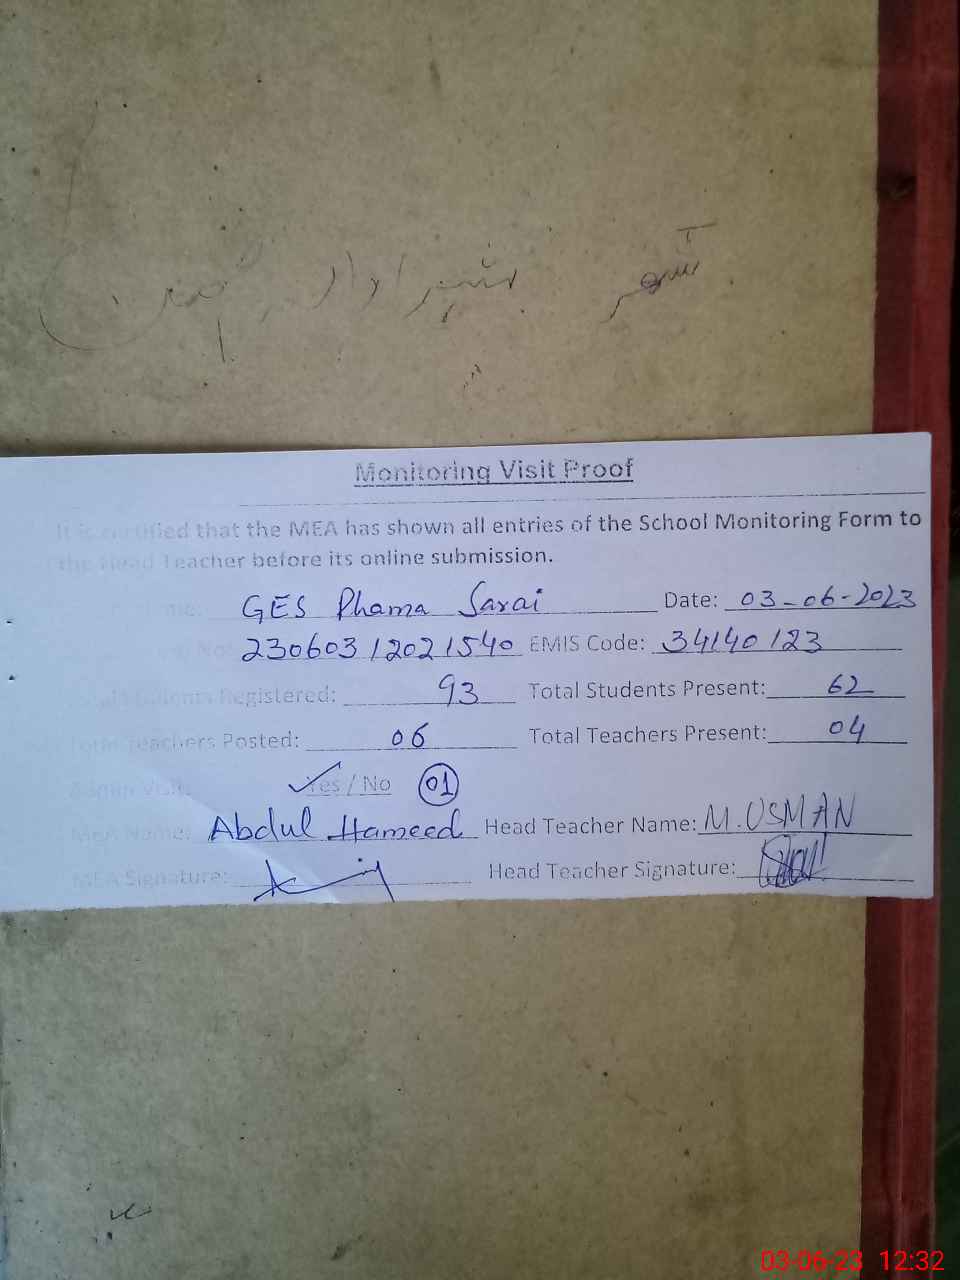 Monitoring Visit Proof
It is certified that the MEA has shown all entries of the School Monitoring Form to
the Head Teacher before its online submission.
GES Phama Sarai Date: 03-06-2023
23060312021540 EMIS Code: 34140123
Students Registered: 93 Total Students Present: 62
Teachers Posted: 06 Total Teachers Present: 04
Admin Visit: Yes / No 01
MEA Name: Abdul Hameed Head Teacher Name: M. USMAN
MEA Signature: Head Teacher Signature:
03-06-23 12:32